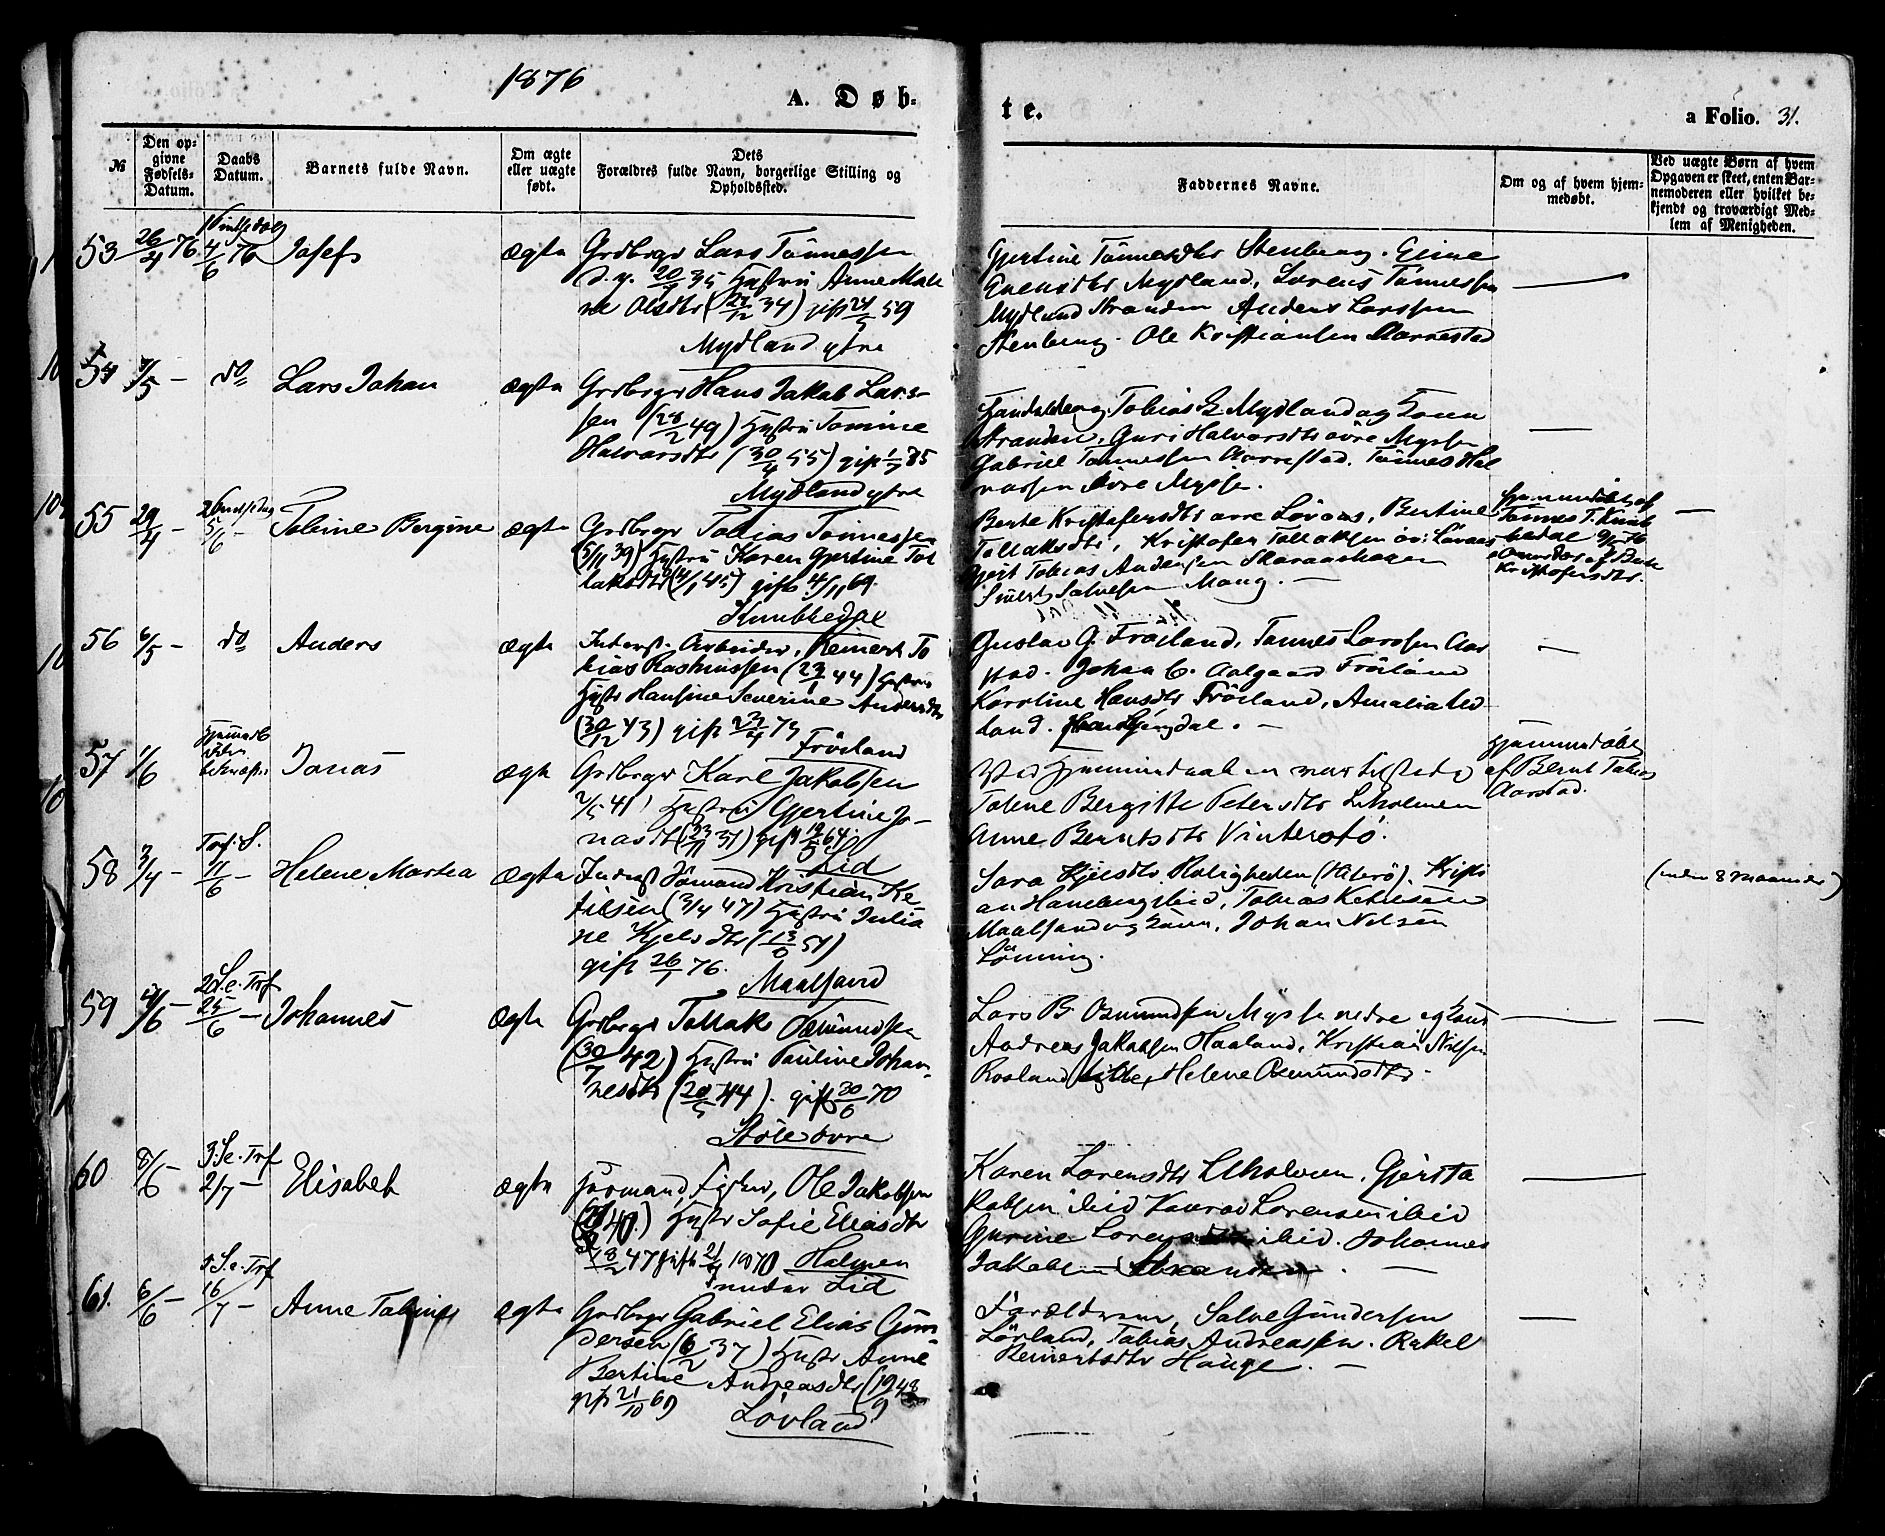 1876
A. Døb-
te.
a Folio. 31.
№
Den op-
givne
Fødsels-
Datum.
Daabs
Datum.
Barnets fulde Navn.
Om ægte
eller uægte
født.
Dets
Forældres fulde Navn, borgerlige Stilling og
Opholdssted.
Faddernes Navne.
Om og af hvem hjem-
medøbt.
Ved uægte Børn af hvem
Opgaven er skeet, enten Bar-
nemoderen eller hvilket be-
kjendt og troværdigt Med-
lem af Menigheden.
53 26/4 76 4/6 76 Josef ægte Grdbrgr Lars Tönnessen
20/ 35 Hustru Anne Male
ne Olsdtr (/12 34) gift 24/5 59
Mydland ytre
Gjertine Tönnesdtr Stenberg. 
Mydland, Lorens Tönnessen
Mydland Stranden Anders Larssen
Stenberg. Ole Kristiansen Aarrestad
54 7/5 - do Lars Johan ægte Grdbrgr Hans Jakob Lars-
sen (28/2 49) Hustru Tomine
Halvorsdtr (30/4 55) gift 1/7 75
Mydland ytre
Tobias Mydland og Kone
Stranden, Guri Halvorsdtr övre Myssen
Gabriel Tönnessen Aarrestad. Tönnes Hal
vorsen övre Mysse.
55 29/4 - 2 Pindsedag 5/6 - Tobine Bergine ægte Grdbrgr Tobias Tönnessen
(5/11 39) Hustru Karen Gjertine Tol
laksdtr (4/1 45) gift 4/11 69
Kumbledal
Berte Kristofersdtr övre Lövaas, Bertine
Tollaksdtr, Kristofer Tollaksen öv: Lövaas
Tobias Andersen Skaraashagen
Sivert Salvesen Moug. -
Hjemmedöbt af
Tönnes T. Kumb
ledal
Kristofersdtr.
56 6/5 - do Anders ægte Inderst. Arbeider, Reinert To
bias Rasmussen (23/1 44) Hustru
Hansine Severine Andersdtr
(30/12 43) gift 23/4 73
Fröiland
Gustav G. Fröiland, Tönnes Larssen Aar
stad. Johan C. Aalgaard Fröiland
Karoline Hansdtr Fröiland, Amalia Ud
land.
57 1/6 Jonas ægte Grdbrgr Karl Jakobsen
41 Hustru Gjertine Jo-
nasdtr (23/11 31) gift 19/5 64
Lid
Ved Hjemmedaaben var tilstede
Tobine Bergitte Petersdtr Liholmen
Anne Berntsdtr Vinterstö.
Hjemmedöbt
af Bernt Tobias
Aarstad.
58 3/4 - Tref. S. 11/6 - Helene Martea ægte Inderst Sömand Kristian Ke-
tilsen (3/4 47) Hustru Julia
ne Kjelsdtr (13/6 51)
gift 26/1 76.
Maalsand
Sara Kjelsdtr Roligheden (Hiterö). Kristi
an Haneberg ibid, Tobias Ketilsen
Maalsand og Kone, Johan Nilsen
Lönning.
(inden 8 Maaneder)
59 4/6 - 2 S. e. Tref 25/6 - Johannes ægte Grdbrgr Tollak Osmundsen
(30/7 42) Hustru Pauline Johan-
nesdtr (20/5 44). gift 30/6 70
Stöle övre
Lars B. Osmundsen Myssa nedre og Kone
Andreas Jakobsen Haaland, Kristian Nilsen
Rosland lille, Helene Osmundsdtr.
60 8/6 - 3. S. e. Tref 2/7 - Elisabet ægte Sömand, Fisker, Ole Jakobsen
40) Hustr Sofie Eliasdtr
18/2 47 gift 21/ 1870 Holmen
under Lid
Karen Lorensdtr Liholmen. Gjert Ja
kobsen ibid Konrad Lorensen ibid
Gurine Lorensdtr ibid. Johannes
Jakobsen Stranden. -
61. 6/6 - 5 S. e. Tref 16/7 - Anne Tobine ægte Grdbrgr Gabriel Elias Gun-
dersen (6/2 37) Hustr Anne
Bertine Andreasdtr (19/9 48
gift 21/10 69
Lövland
Forældrene, Salve Gundersen
Lövland, Tobias Andreassen. Rakel
Reinertsdtr Hauge. -